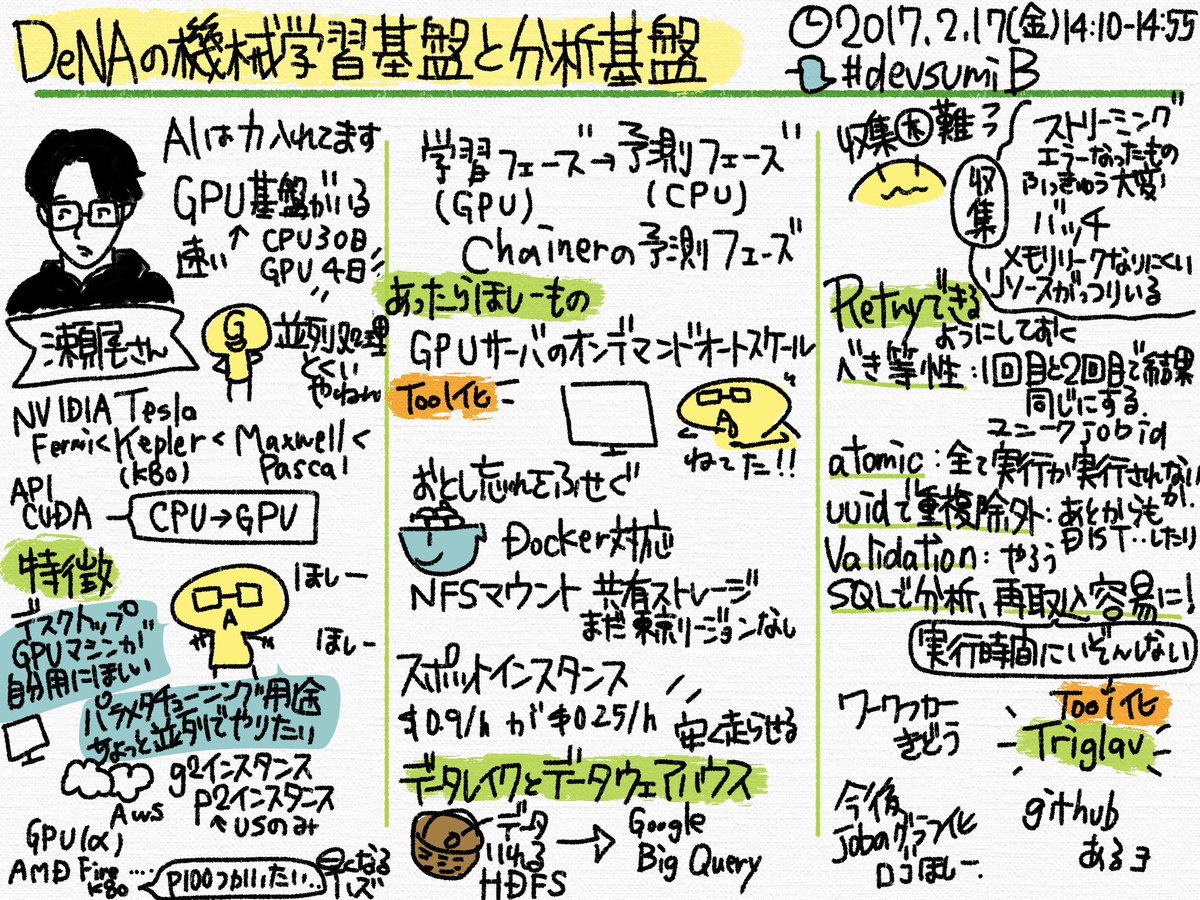 DeNAの機械学習基盤と分析基盤
2017.2.17(金)14:10-14:55
#devsumiB
AIは力入れてます
GPU基盤がいる
速い
↑
CPU30日
GPU 4日
瀬尾さん
G
並列処理
とくい
やねん
NVIDIA Tesla
Fermi<Kepler<Maxwell<
(k80)
Pascal
API
CUDA
CPU→GPU
特徴
デスクトップ
GPUマシンが
自分用にほしい
A
ほしー
ほしー
パラメタチューニング用途
ちょっと並列でやりたい
AWS
g2インスタンス
p2インスタンス
↑USのみ
GPU(α)
AMD Fire....
k80
P100つかいたい..
早くなる
ハズ
学習フェーズ→予測フェーズ
(GPU)
(CPU)
Chainerの予測フェーズ
あったらほしーもの
GPUサーバのオンデマンドオートスケール
Tool化
A
ねてた!!
おとし忘れをふせぐ
Docker対応
NFSマウント 共有ストレージ
まだ東京リージョンなし
スポットインスタンス
$0.9/h が $0.25/h
安く走らせる
データレイクとデータウェアハウス
データ
いれる
HDFS
→
Google
Big Query
収集大難っ
収集
ストリーミング
エラーなったもの
ふっきゅう大変!
バッチ
メモリリークなりにくい
リソースがっつりいる
Retryできる
ようにしておく
べき等性:1回目と2回目で結果
同じにする.
ユニークjob id
atomic:全て実行か実行されないか.
uuidで重複除外:あとからも
DIST..したり
Validation:やろう
SQLで分析、再取込容易に!
実行時間にいぞんしない
ワークフロー
きどう
Tool化
Triglav
今後
jobのグラフ化
ロゴほしー.
github
あるヨ